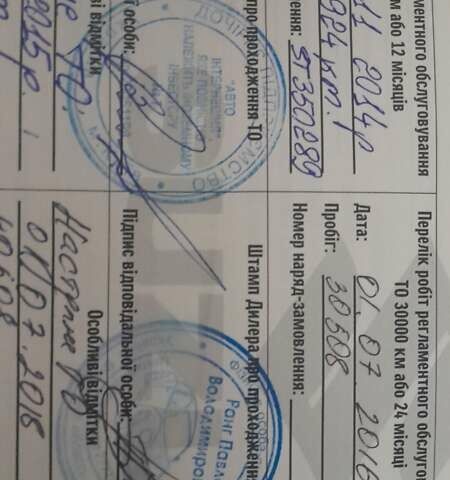 ментного обслуговування
м або 12 місяців
11 2014р
924 км.
ST350289
про проходження ТО
ДОЧІРНЄ ПІДПРИЄМСТВО
"АВТО
особи:
ві відмітки
ТО,
2015р.
Перелік робіт регламентного обслуго
ТО 30000 км або 24 місяці
Дата: 01.07.2016
Пробіг: 30508
Номер наряд-замовлення:
Штамп Дилера про проходження
Ранг Павл
Володимиро
Підпис відповідальної особи:
Особливі відмітки
Наступне ТО
01.07.2018